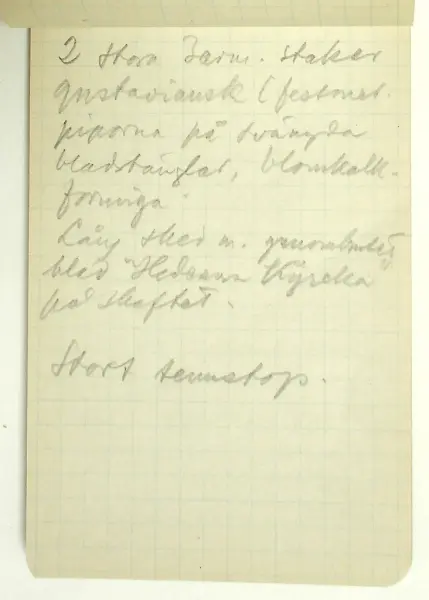 2 stora 3arm. staker
gustaviansk (festoner.
piporna på svängda
bladstänglar, blomkalk-
formiga.
Lång sked m. genombrutet
blad "Hedesunna Kyrcka"
på skaftet.
Stort tennstop.